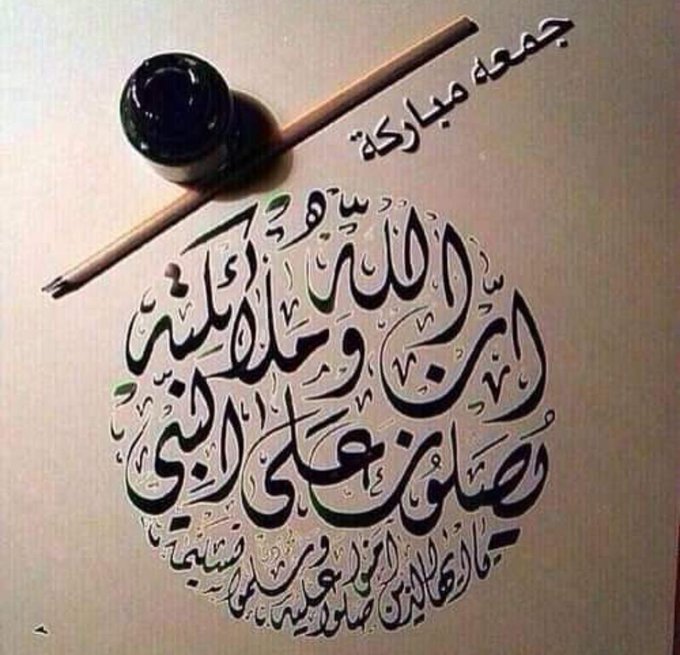 جمعه مباركة
ان الله وملائكته
يصلون على النبي
يا ايها الذين امنوا صلوا عليه وسلموا تسليما